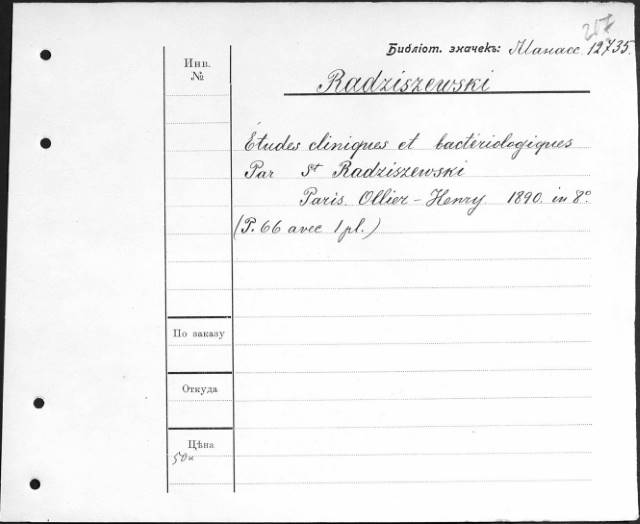 217
Библіот. значекъ: Манасс. 12735.
Инв.
№
Radziszewski
Études cliniques et bactériologiques
Par St Radziszewski
Paris. Ollier-Henry 1890. in 8°.
(P. 66 avec 1 pl.)
По заказу
Откуда
Цѣна
50к